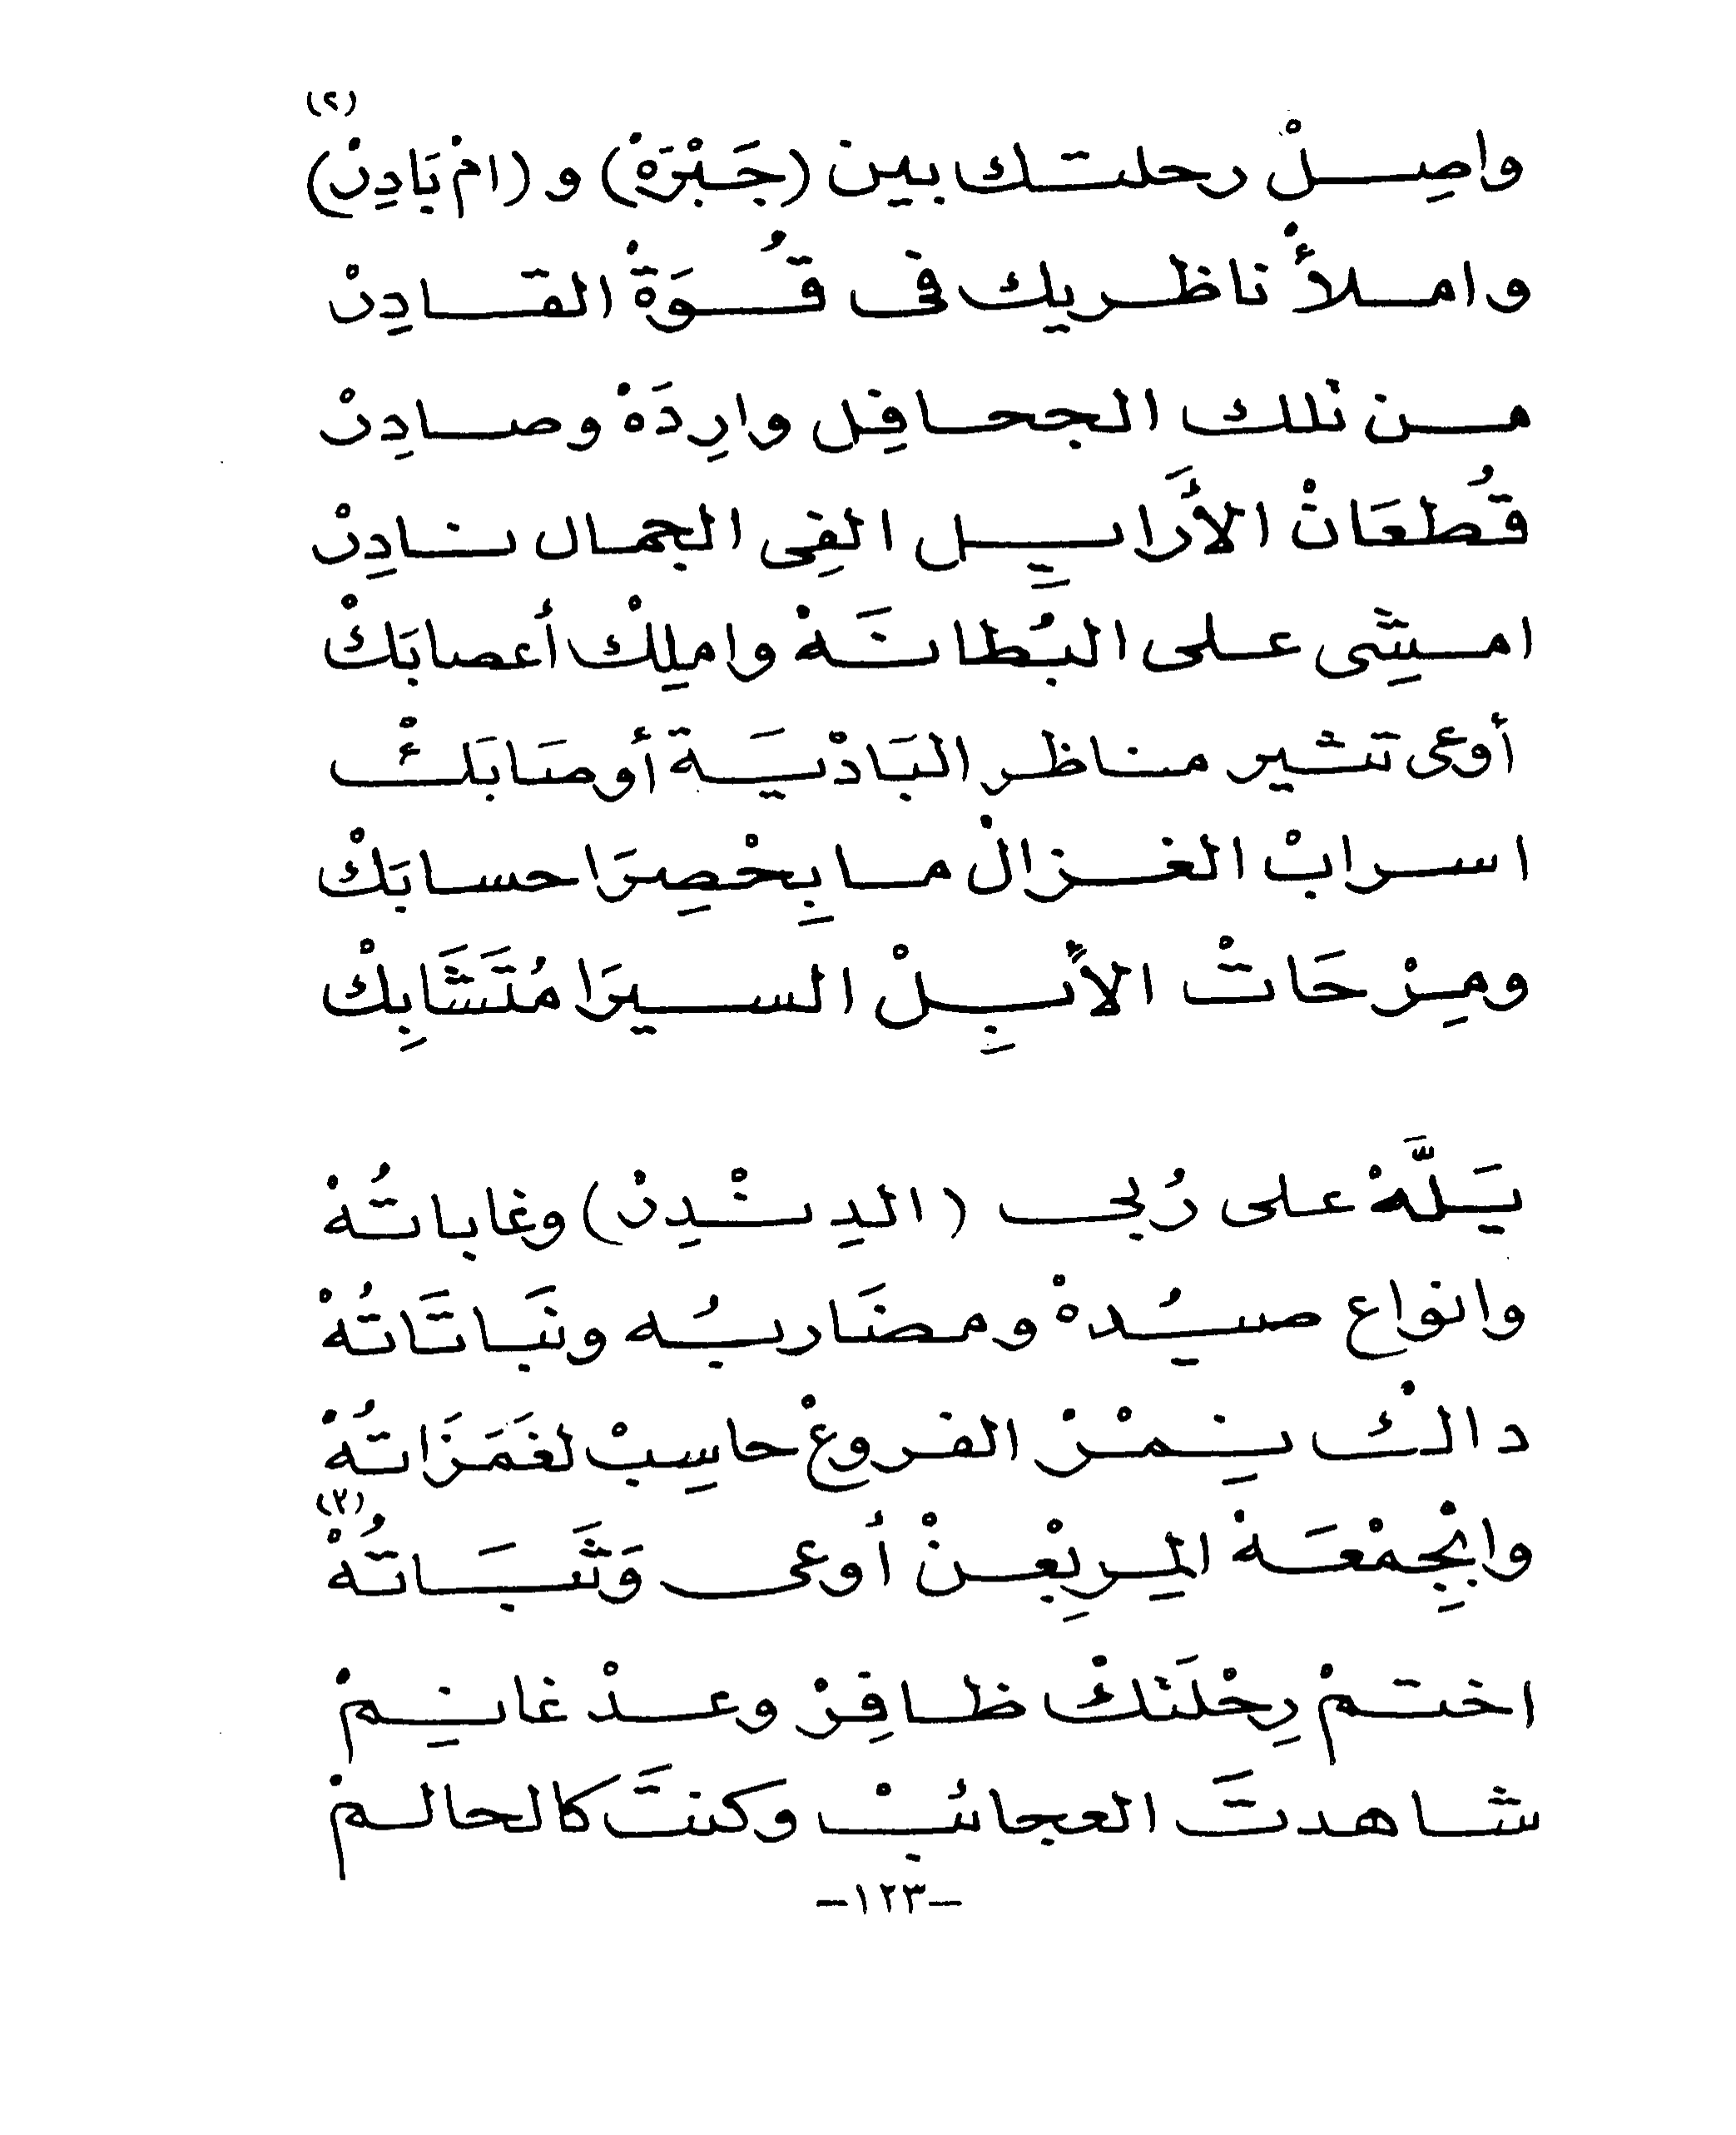 (٢)
واصِلْ رحلتك بين (جَبْرَهْ) و (امْ بَادِرْ)
واملأْ ناظريك فى قُوَةْ القادِرْ
من تلك الجحافِل وارِدَهْ وصادِرْ
قُطعَانْ الأَرايِل الفِى الجمال نادِرْ
امشِى على البُطانَهْ واملِكْ أعصابَكْ
أوعى تثير مناظر البَادْيَة أوصَابَكْ
اسرابْ الغزالْ ما بِحْصِرَا حسابَكْ
ومِرْحَاتْ الأبِلْ السيرَا مُتَشَابِكْ
يَلَّهْ على رُبى (الدِنْدِرْ) وغاباتُهْ
وانواع صيُدهْ ومضَاربُه ونَبَاتَاتُهْ
داكْ نِمْرْ الفروعْ حاسِبْ لغَمَزَاتُهْ
(٣)
وابْجِمْعَهْ المِربِعْنْ أوعى وَثَبَاتُهْ
اختمْ رِحْلَتَكْ ظافِرْ وعدْ غانِمْ
شاهدتَ العجائبْ وكنتَ كالحالمْ
-١٢٣-